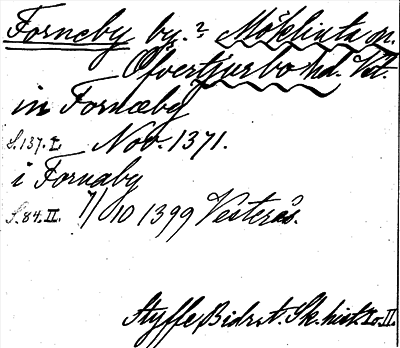 Forneby by.? Möklinta sn.
Öfvertjurbo hd. Vstm.
in Fornæby
S.137.I. Nov. 1371.
i Fornaby
S.84.II. 7/10 1399 Vesterås.
Styffe, Bidr. t. Sk. hist. I o. II.